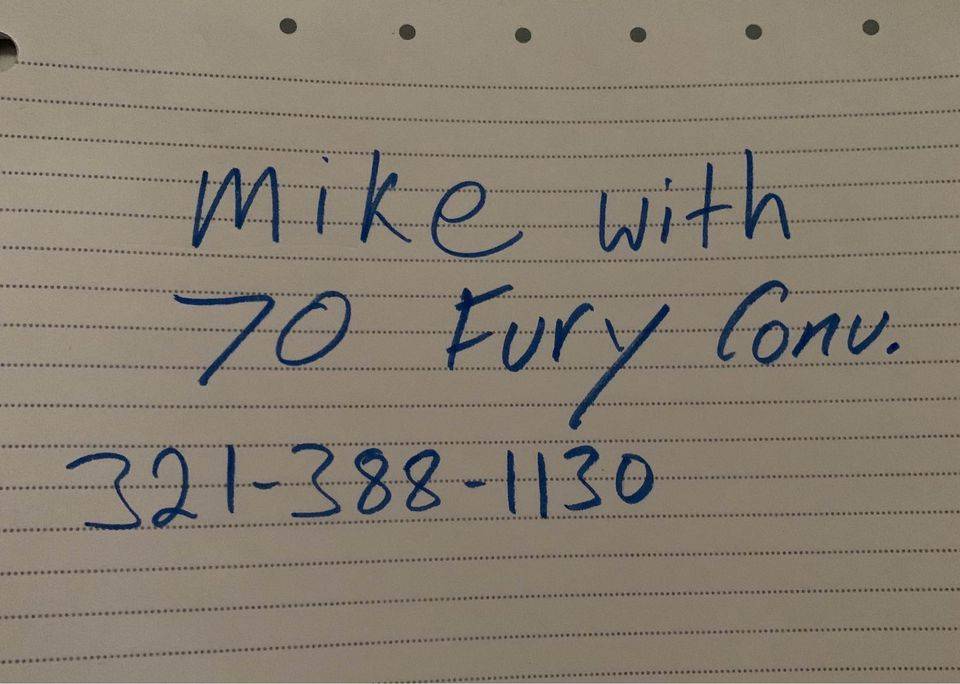 Mike with
70 Fury Conv.
321-388-1130